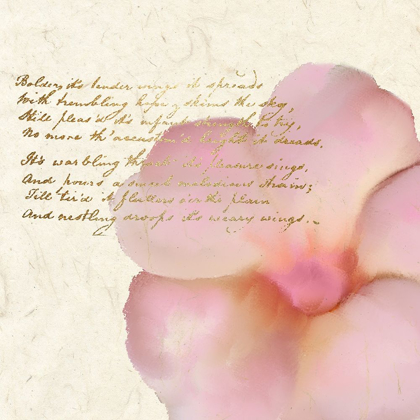 Boldly its tender wings it spreads
With trembling hope, skims the sky,
Still pleas'd its infant strength to try,
No more th' accustom'd height it dreads.
Its warbling throat with pleasure sings,
And pours a sweet melodious strain;
Till tir'd it flutters o'er the plain
And nestling droops its weary wings.